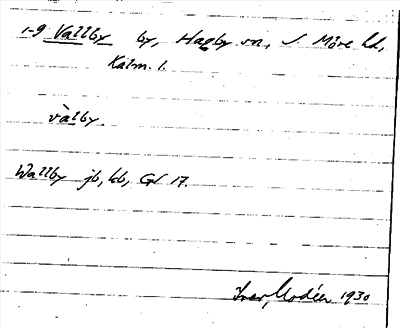 1-9 Vallby by, Hagby sn, S. Möre hd,
Kalm. l.
vàlby
Wallby jb, kb, GV 17.
Ivar Modéer 1930